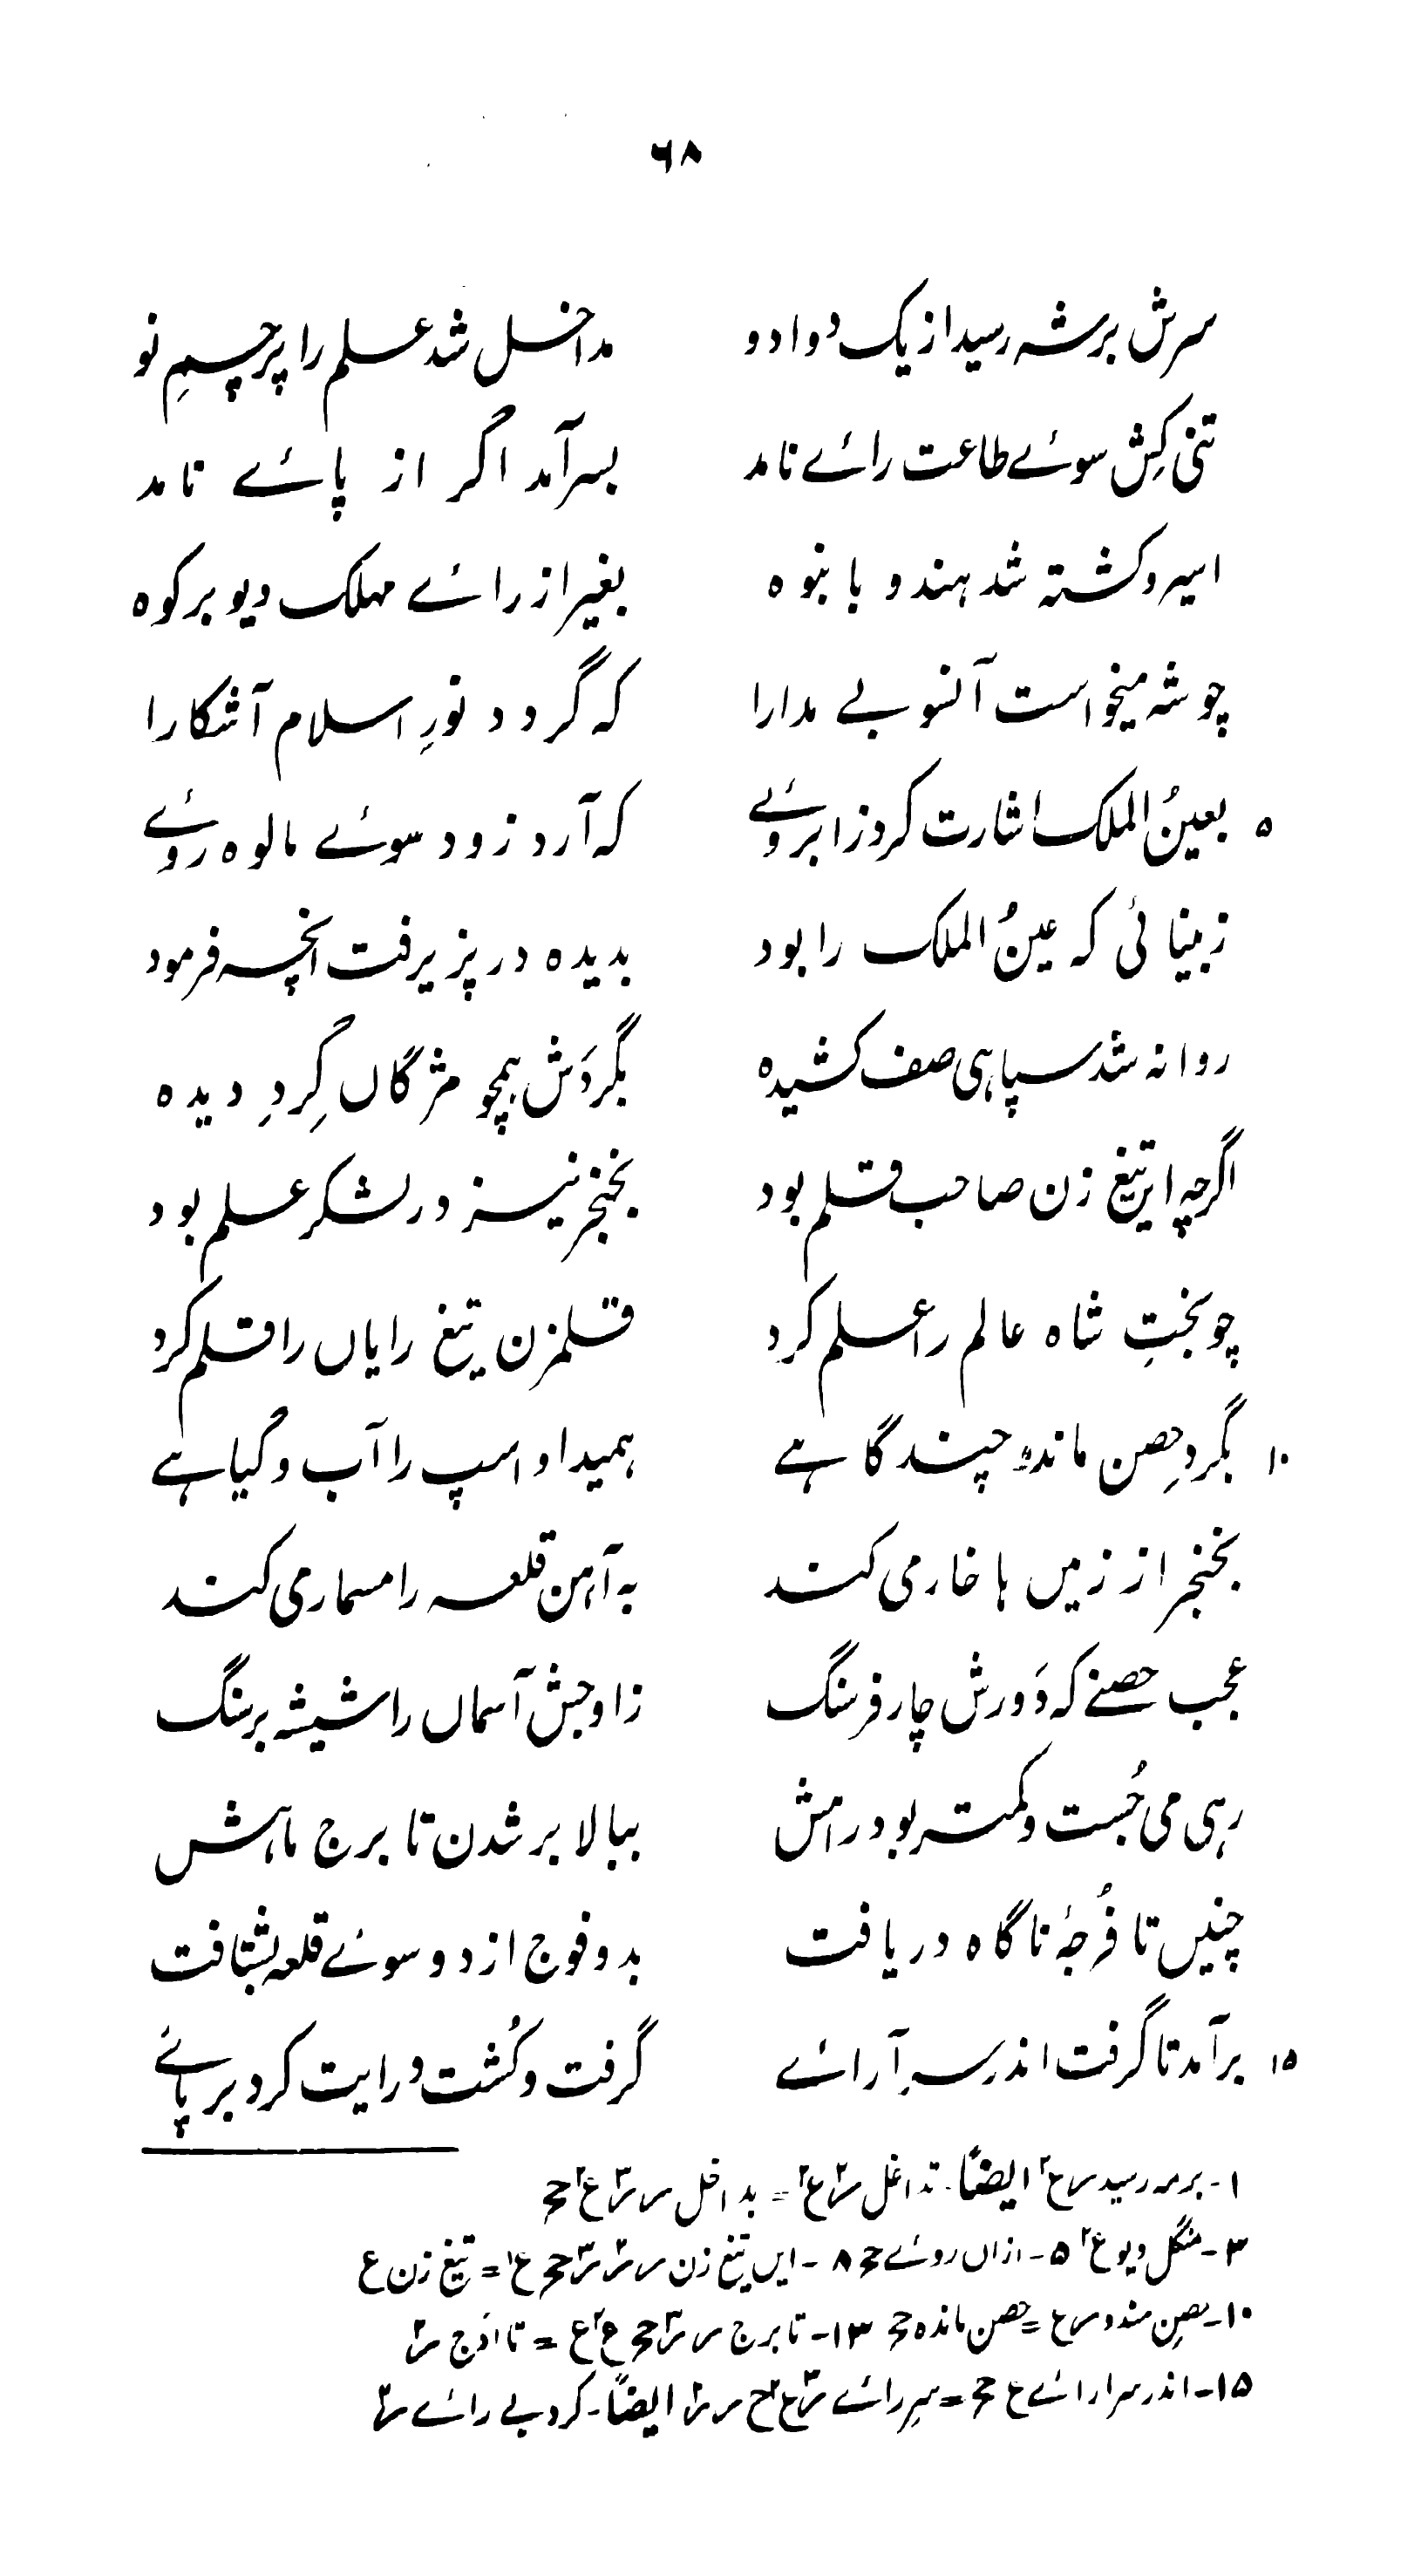 ۶۸
سرش بر شہ رسید از یک دوا دو مداخل شد علم را پرچمِ نو
تنی کِش سوئے طاعت رائے نامد بسر آمد اگر از پائے نامد
اسیر و کشتہ شد ہندو بانبوہ بغیر از رائے مہلک دیو بر کوہ
چو شہ میخواست آنسو بے مدارا کہ گردد نورِ اسلام آشکارا
۵ بعینُ الملک اشارت کرد ز ابروئے کہ آرد زود سوئے مالوہ روئے
ز بینائی کہ عینُ الملک را بود بدیدہ در پزیرفت انچہ فرمود
روانہ شد سپاہی صف کشیدہ بگردَش ہمچو مژگاں گِردِ دیدہ
اگرچہ ایں تیغ زن صاحب قلم بود بخنجر نیز در لشکر علم بود
چو بختِ شاہ عالم را علم کرد قلمزن تیغ رایاں را قلم کرد
۱۰ بگردِ حِصن ماندو چند گاہے ہمیداد اسپ را آب و گیاہے
بخنجر از زمیں ہا خار می کند بہ آہن قلعہ را مسمار می کند
عجب حصنے کہ دَورش چار فرسنگ ز اوجش آسماں را شیشہ بر سنگ
رہی می جُست و کمتر بود راہش ببالا بر شدن تا برج ماہش
چنیں تا فُرجۂ ناگاہ دریافت بدو فوج از دو سوئے قلعہ بشتافت
۱۵ برآمد تا گرفت اندر سرِ آرائے گرفت و کُشت و رایت کرد بر پائے
۱- برمہ رسید س ع۲ ایضاً۔ تداغل ع۲ = بداخل س ع۲ ح
۳- منگل دیو ع۲ ۵- ازاں روئے ح ۸- ایں تیغ زن س ح ع۲ = تیغ زن ع
۱۰- بصِن مندو س ع = حصن ماندہ ح ۱۳- تا برج س ح ع۲ ع = تا اَوج
۱۵- اندر سرارائے ع ح = سرِ رائے ع۲ ح س ایضاً۔ کرد بے رائے